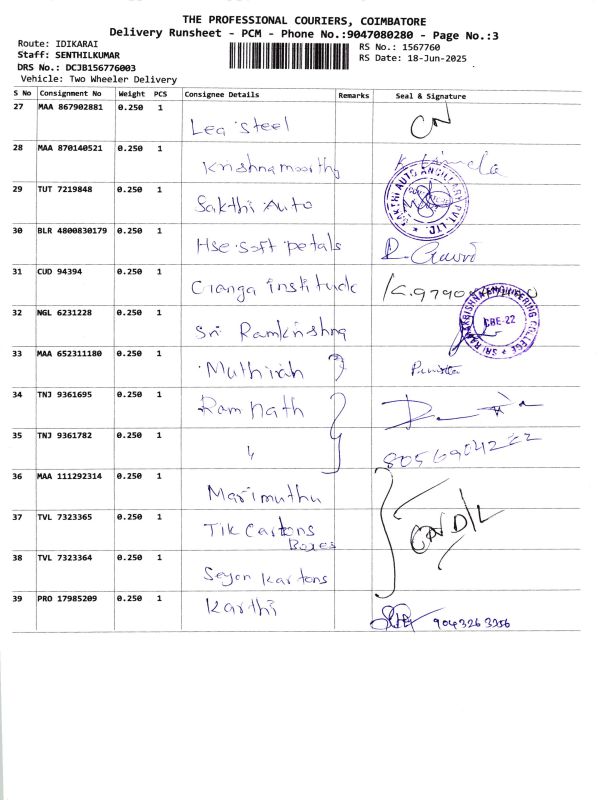 THE PROFESSIONAL COURIERS, COIMBATORE
Delivery Runsheet - PCM - Phone No.:9047080280 - Page No.:3
Route: IDIKARAI
Staff: SENTHILKUMAR
DRS No.: DCJB156776003
Vehicle: Two Wheeler Delivery
RS No.: 1567760
RS Date: 18-Jun-2025
S No Consignment No Weight PCS Consignee Details Remarks Seal & Signature
27 MAA 867902881 0.250 1 Lea steel CN
28 MAA 870140521 0.250 1 Krishnamoorthy
29 TUT 7219848 0.250 1 Sakthi Auto SAKTHI AUTO ANCILLARY PVT. LTD.
30 BLR 4800830179 0.250 1 Hse soft petals R. Gowri
31 CUD 94394 0.250 1 Gianga institude
32 NGL 6231228 0.250 1 Sri Ramkrishna SRI RAMAKRISHNA ENGINEERING COLLEGE CBE-22
33 MAA 652311180 0.250 1 Muthirah
34 TNJ 9361695 0.250 1 Ramnath
35 TNJ 9361782 0.250 1 〃
36 MAA 111292314 0.250 1 Marimuthu
37 TVL 7323365 0.250 1 Tik Cartons Boxes CN D/L
38 TVL 7323364 0.250 1 Seyon kartons
39 PRO 17985209 0.250 1 Karthi 9043263256